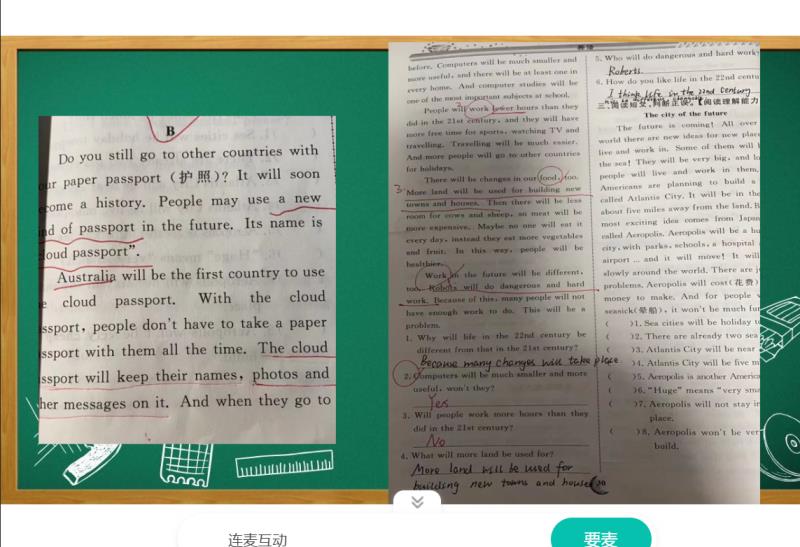 B
Do you still go to other countries with
our paper passport (护照)? It will soon
come a history. People may use a new
nd of passport in the future. Its name is
loud passport”.
Australia will be the first country to use
e cloud passport. With the cloud
ssport, people don't have to take a paper
ssport with them all the time. The cloud
ssport will keep their names, photos and
her messages on it. And when they go to
before. Computers will be much smaller and
more useful, and there will be at least one in
every home. And computer studies will be
one of the most important subjects at school.
People will work fewer hours than they
did in the 21st century, and they will have
more free time for sports, watching TV and
travelling. Travelling will be much easier.
And more people will go to other countries
for holidays.
There will be changes in our food, too.
3.
More land will be used for building new
towns and houses. Then there will be less
room for cows and sheep, so meat will be
more expensive. Maybe no one will eat it
every day, instead they eat more vegetables
and fruit. In this way, people will be
healthier.
Work in the future will be different,
too. Robots will do dangerous and hard
work. Because of this, many people will not
have enough work to do. This will be a
problem.
1. Why will life in the 22nd century be
different from that in the 21st century?
Because many changes will take place.
2. Computers will be much smaller and more
useful, won't they?
Yes
3. Will people work more hours than they
did in the 21st century?
No
4. What will more land be used for?
More land will be used for
building new towns and houses
5. Who will do dangerous and hard work
Robots.
6. How do you like life in the 22nd centu
I think life in the 22nd century
三、阅读短文,判断正误。【阅读理解能力
The city of the future
The future is coming! All over
world there are new ideas for new place
live and work in. Some of them will
the sea! They will be very big, and lo
people will live and work in them.
Americans are planning to build a
called Atlantis City. It will be in the
about five miles away from the land. B
most exciting idea comes from Japan
called Aeropolis. Aeropolis will be a hu
city, with parks, schools, a hospital
airport ... and it will move! It will
slowly around the world. There are j
problems. Aeropolis will cost(花费)
money to make. And for people w
seasick(晕船), it won't be much fun
( )1. Sea cities will be holiday t
( )2. There are already two sea
( )3. Atlantis City will be near
( )4. Atlantis City will be five m
( )5. Aeropolis is another America
( )6. “Huge” means “very sma
( )7. Aeropolis will not stay in
place.
( )8. Aeropolis won't be ver
build.
连麦互动
要麦